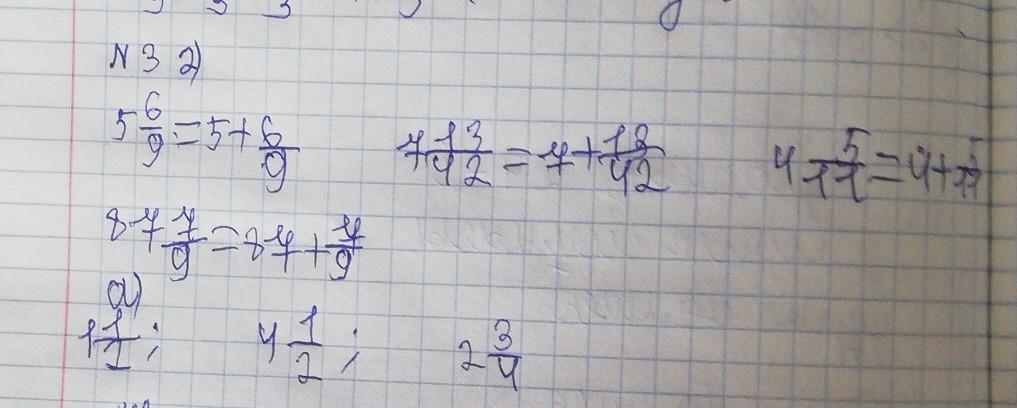 N 3 2)
5 6/9 = 5 + 6/9    7 13/42 = 7 + 13/42    4 5/11 = 4 + 5/11
87 7/9 = 87 + 7/9
a)
1 1/2 ;    4 1/2 ;    2 3/4